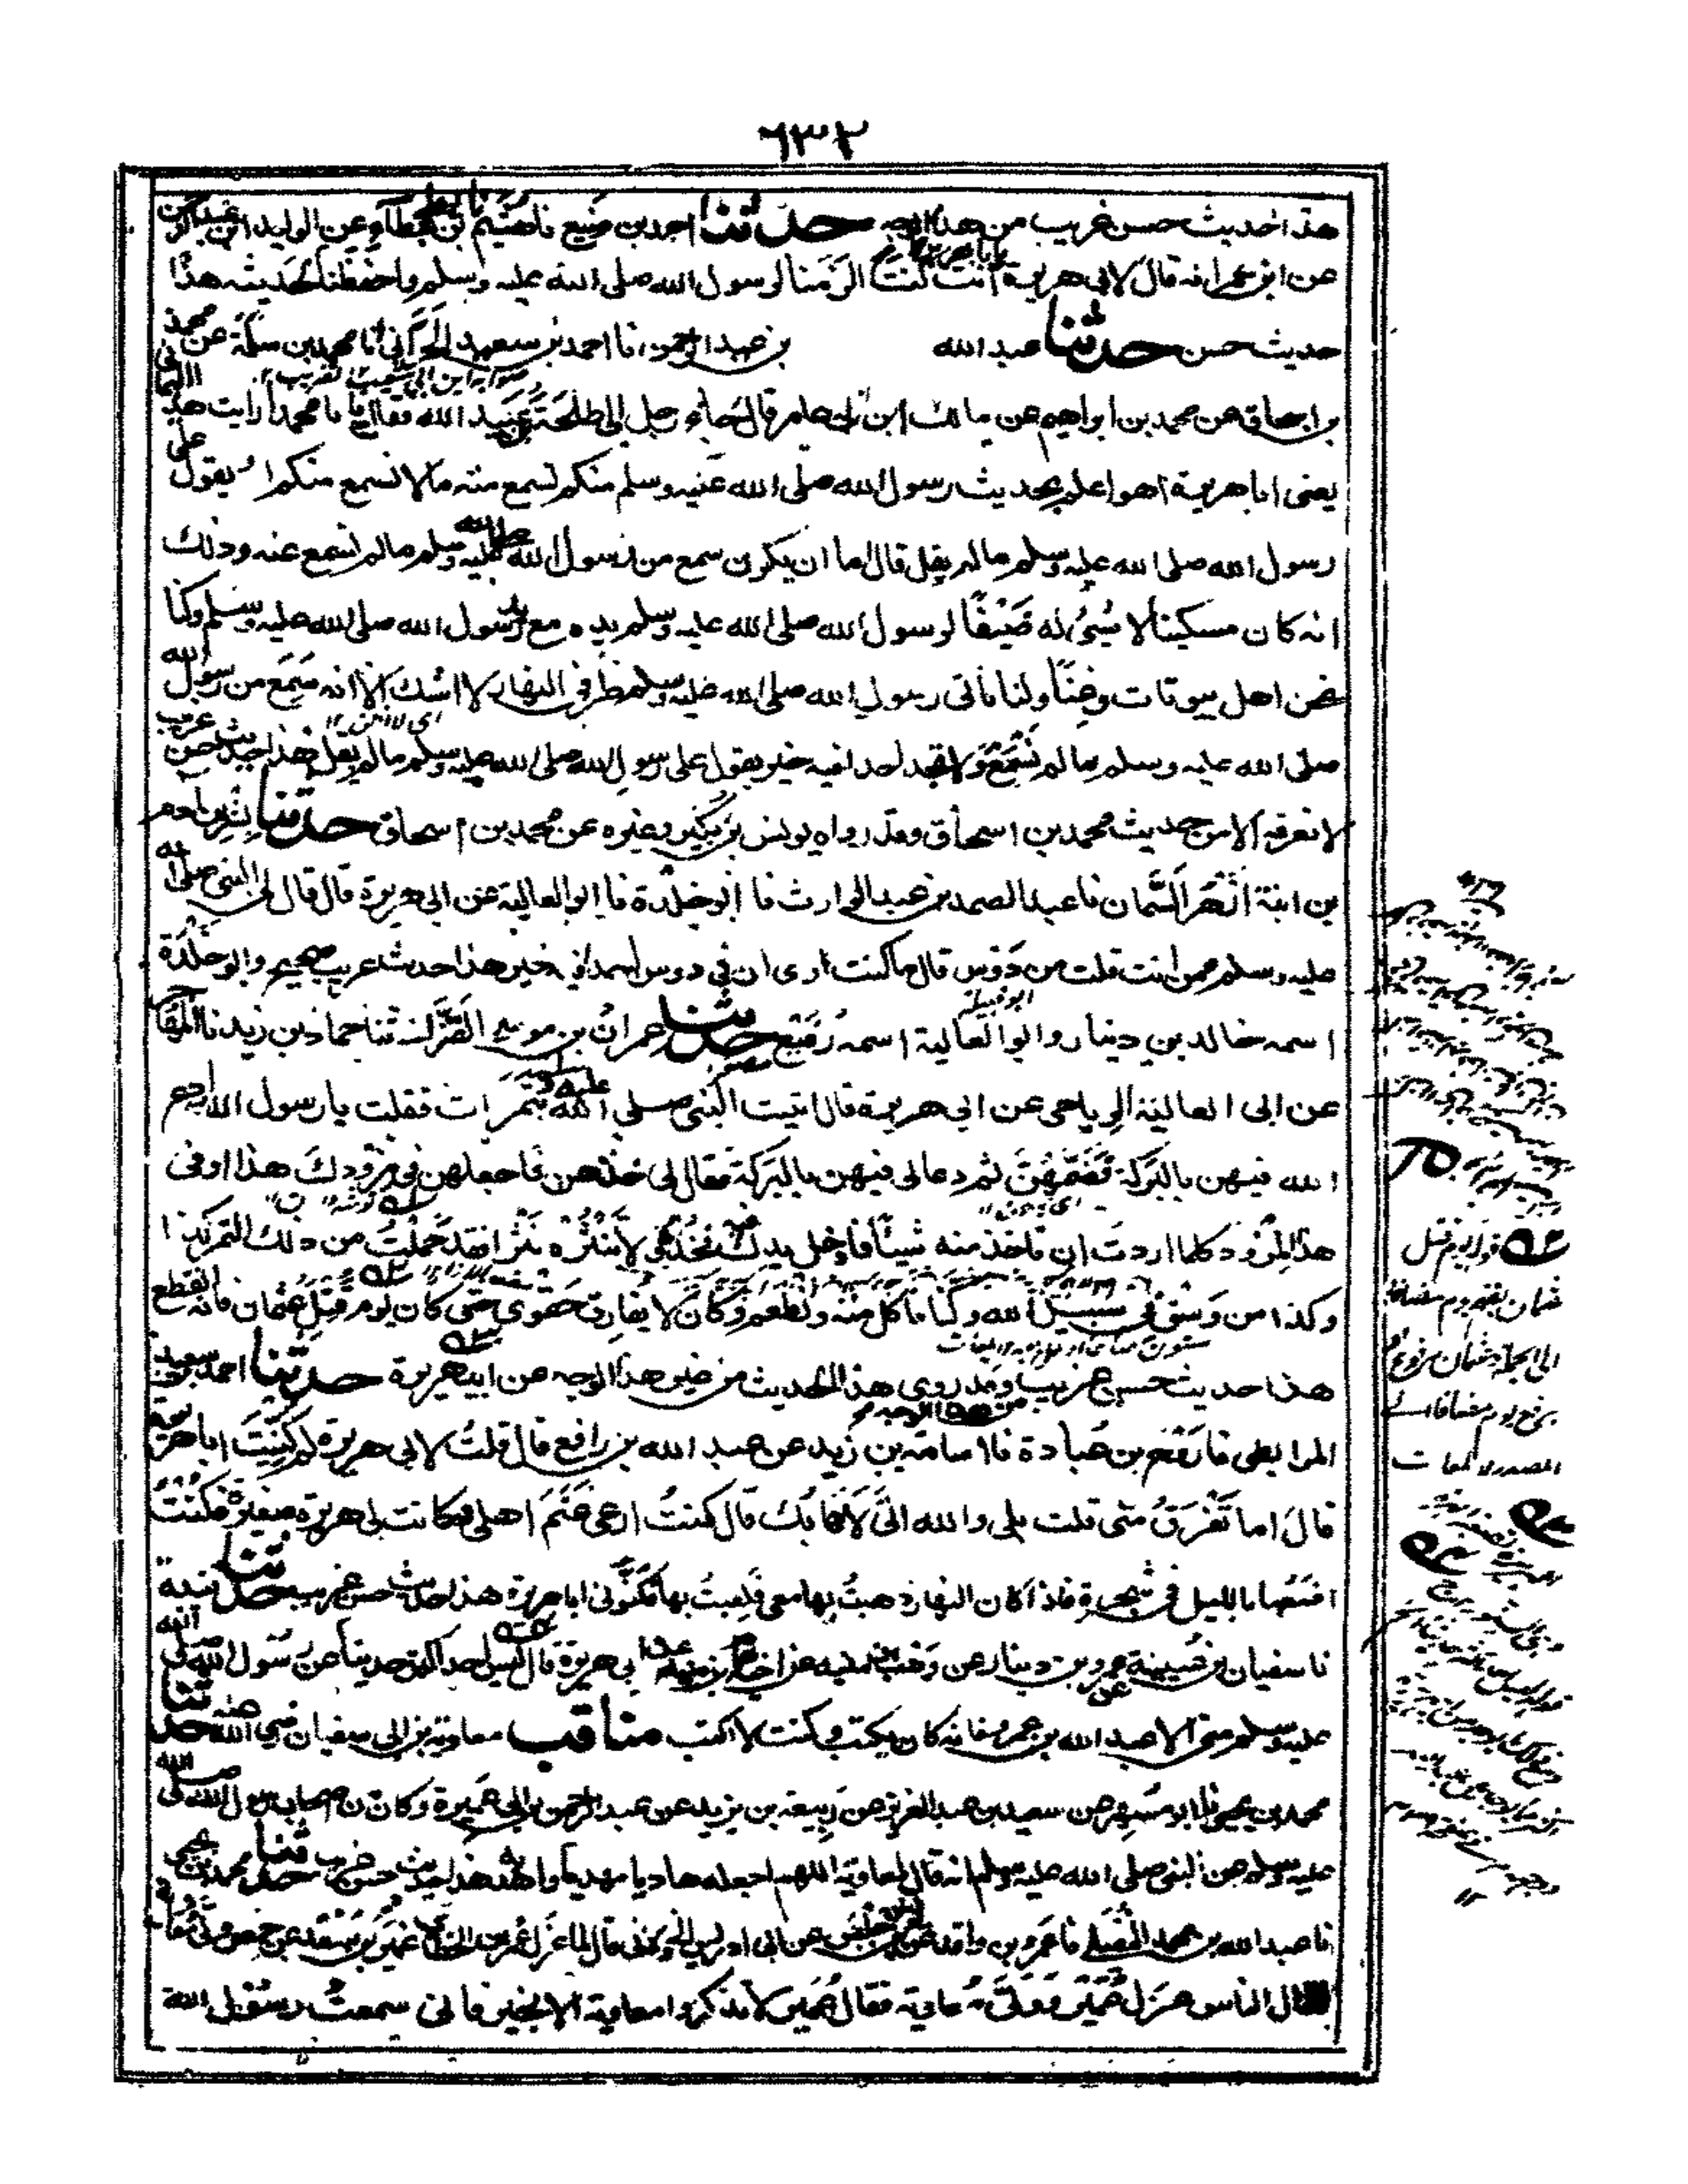 ٦٣٢
هذا حديث حسن غريب من هذا الوجه حدثنا احمد بن منيع نا هشيم نا يعلى بن عطاء عن الوليد ابن عبد الرحمن
عن ابن عمر انه قال لابي هريرة يا ابا هريرة انت كنت الزمنا لرسول الله صلى الله عليه وسلم واحفظنا لحديثه هذا
حديث حسن حدثنا عبد الله بن عبد الرحمن انا احمد بن سعيد الحراني انا محمد بن سلمة عن محمد
بن اسحاق عن محمد بن ابراهيم عن مالك ابن ابي عامر قال جاء رجل الى طلحة بن عبيد الله فقال يا ابا محمد أرايت هذا اليماني
يعنى ابا هريرة أهو اعلم بحديث رسول الله صلى الله عليه وسلم منكم نسمع منه ما لا نسمع منكم او يقول على
رسول الله صلى الله عليه وسلم ما لم يقل قال اما ان يكون سمع من رسول الله صلى الله عليه وسلم ما لم نسمع عنه وذلك
انه كان مسكينا لا شئ له ضيفا لرسول الله صلى الله عليه وسلم يده مع يد رسول الله صلى الله عليه وسلم وكنا
نحن اهل بيوتات وغنا وكنا ناتى رسول الله صلى الله عليه وسلم طرفى النهار لا اشك الا انه سمع من رسول الله
صلى الله عليه وسلم ما لم نسمع ولا تجد احدا فيه خير يقول على رسول الله صلى الله عليه وسلم ما لم يقل هذا حديث حسن غريب
لا نعرفه الا من حديث محمد بن اسحاق وقد رواه يونس بن بكير وغيره عن محمد بن اسحاق حدثنا بشر بن آدم
بن ابنة ازهر السمان نا عبد الصمد بن عبد الوارث نا ابو خلدة نا ابو العالية عن ابى هريرة قال قال لى النبي صلى الله
عليه وسلم ممن انت قلت من دوس قال ما كنت ارى ان فى دوس احدا فيه خير هذا حديث غريب صحيح وابو خلدة
اسمه خالد بن دينار وابو العالية اسمه رفيع حدثنا عمران بن موسى القزاز ثنا حماد بن زيد نا المهاجر
عن ابى العالية الرياحى عن ابى هريرة قال اتيت النبي صلى الله عليه وسلم بتمرات فقلت يا رسول الله ادع
الله فيهن بالبركة فضمهن ثم دعا لى فيهن بالبركة فقال لى خذهن فاجعلهن فى مزودك هذا او فى
هذا المزود كلما اردت ان تاخذ منه شيئا فادخل يدك فيه فخذه ولا تنثره نثرا فقد حملت من ذلك التمر كذا
وكذا من وسق فى سبيل الله وكنا ناكل منه ونطعم وكان لا يفارق حقوى حتى كان يوم قتل عثمان فانه انقطع
هذا حديث حسن غريب من هذا الوجه وقد روى هذا الحديث من غير هذا الوجه عن ابى هريرة حدثنا احمد بن سعيد
المرابطى نا روح بن عبادة نا اسامة بن زيد عن عبد الله بن رافع قال قلت لابى هريرة لم كنيت ابا هريرة
قال اما تفرق منى قلت بلى والله انى لاهابك قال كنت ارعى غنم اهلى فكانت لى هريرة صغيرة فكنت
اضعها بالليل فى شجرة فاذا كان النهار ذهبت بها معى فلعبت بها فكنونى ابا هريرة هذا حديث حسن غريب حدثنا قتيبة
نا سفيان بن عيينة عن عمرو بن دينار عن وهب بن منبه عن اخيه همام بن منبه عن ابى هريرة قال ليس احد اكثر حديثا عن رسول الله صلى الله
عليه وسلم منى الا عبد الله بن عمرو فانه كان يكتب وكنت لا اكتب مناقب معاوية بن ابى سفيان رضى الله عنه حدثنا
محمد بن يحيى نا ابو مسهر عن سعيد بن عبد العزيز عن ربيعة بن يزيد عن عبد الرحمن بن ابى عميرة وكان من اصحاب رسول الله صلى الله
عليه وسلم عن النبي صلى الله عليه وسلم انه قال لمعاوية اللهم اجعله هاديا مهديا واهد به هذا حديث حسن غريب حدثنا محمد بن يحيى
نا عبد الله بن محمد النفيلى نا عمرو بن واقد عن يونس بن حلبس عن ابى ادريس الخولانى قال لما عزل عمر بن الخطاب عمير بن سعد عن حمص ولى معاوية
فقال الناس عزل عمير وولى معاوية فقال عمير لا تذكروا معاوية الا بخير فانى سمعت رسول الله
قوله يوم قتل
عثمان بفتح يوم مضافا
الى الجملة وعثمان مرفوع او
برفع يوم مضافا الى
المصدر لمعات